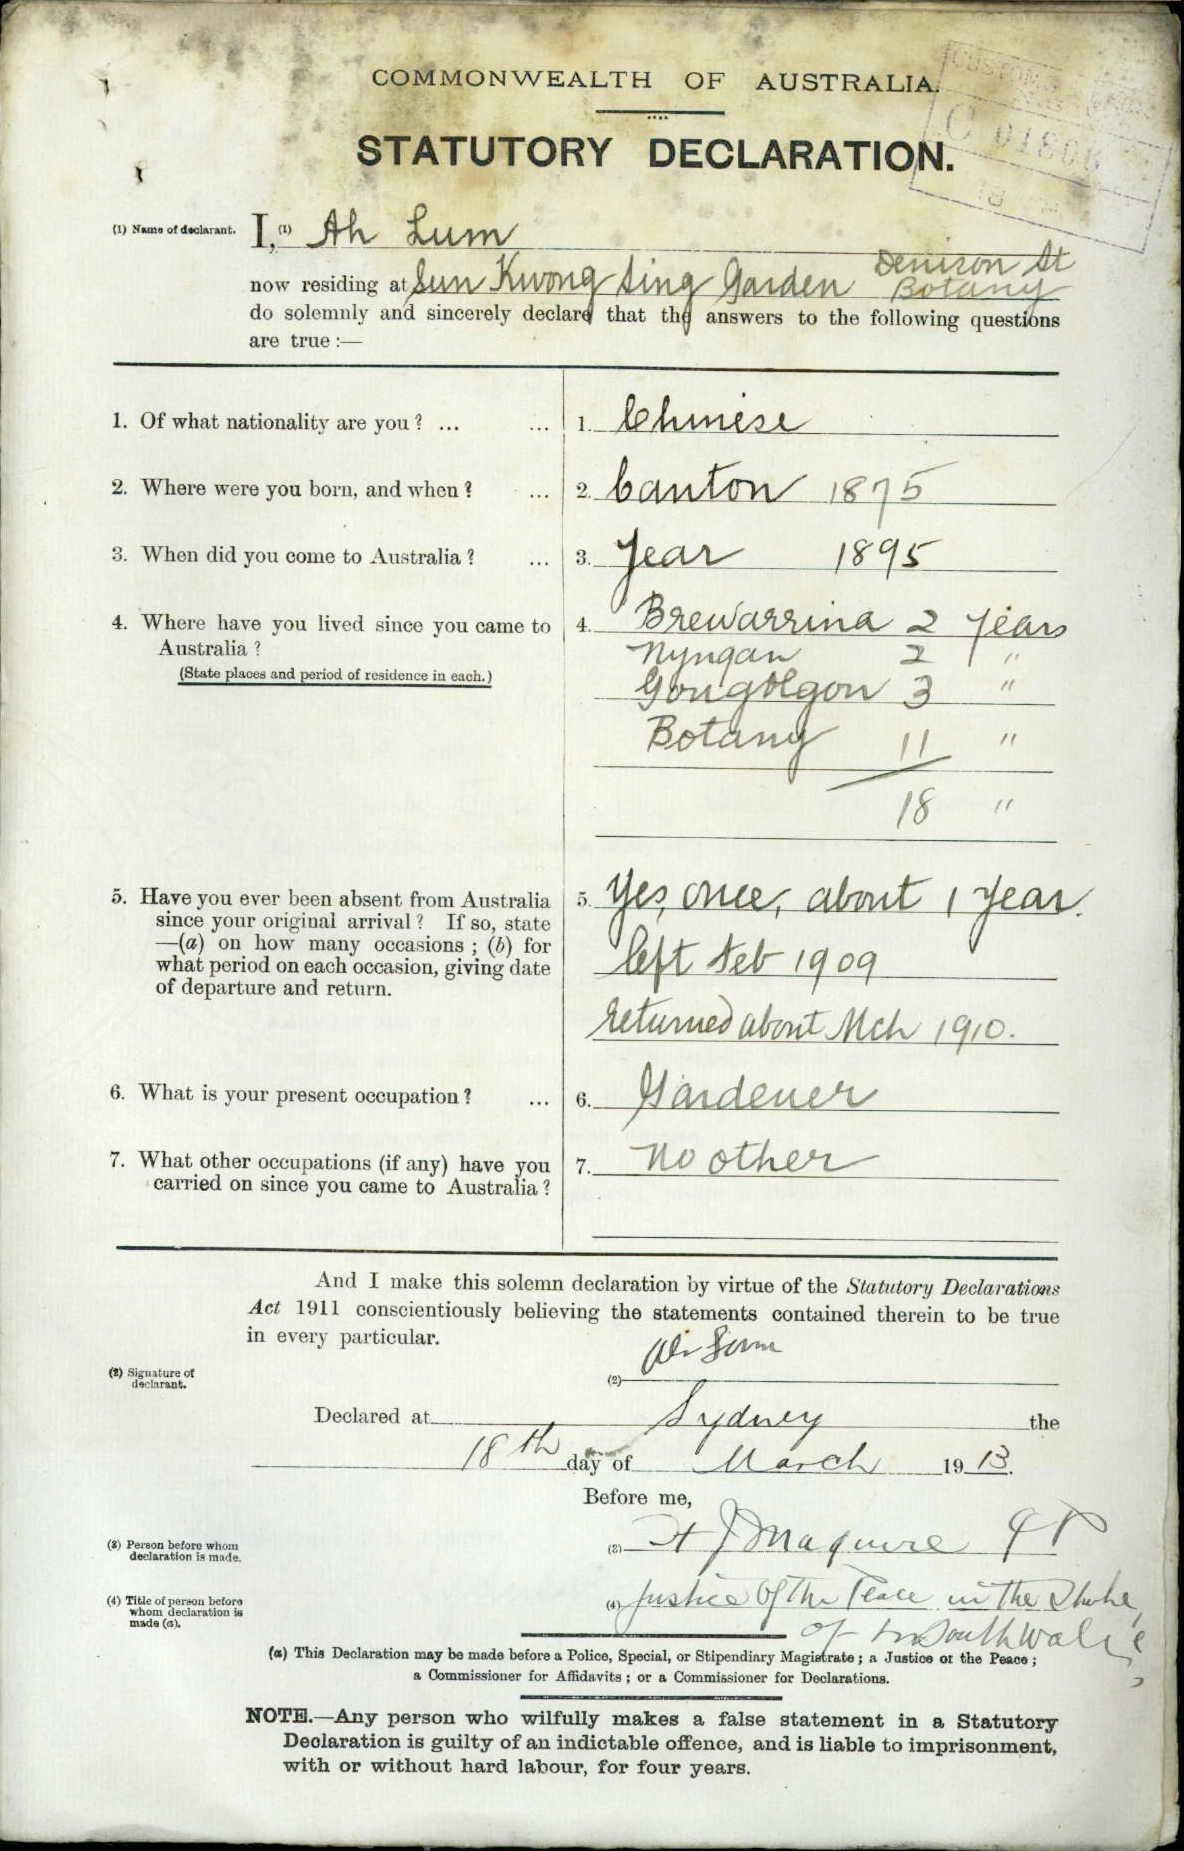 COMMONWEALTH OF AUSTRALIA.
STATUTORY DECLARATION.
(1) Name of declarant. I, (1) Ah Lum
Denison St
now residing at Sun Kwong Sing Garden Botany
do solemnly and sincerely declare that the answers to the following questions
are true :—
1. Of what nationality are you ? ... ... 1. Chinese
2. Where were you born, and when ? ... 2. Canton 1875
3. When did you come to Australia ? ... 3. Year 1895
4. Where have you lived since you came to 4. Brewarrina 2 Years
Australia ? Nyngan 2 "
(State places and period of residence in each.) Gongolgon 3 "
Botany 11 "
18 "
5. Have you ever been absent from Australia 5. Yes, once, about 1 Year.
since your original arrival ? If so, state
—(a) on how many occasions ; (b) for
what period on each occasion, giving date left Feb 1909
of departure and return.
returned about Mch 1910.
6. What is your present occupation ? ... 6. Gardener
7. What other occupations (if any) have you 7. No other
carried on since you came to Australia ?
And I make this solemn declaration by virtue of the Statutory Declarations
Act 1911 conscientiously believing the statements contained therein to be true
in every particular.
(2) Signature of declarant. (2) Ah Lum
Declared at Sydney the
18th day of March 1913.
Before me,
(3) Person before whom declaration is made. (3) H J Maguire JP
(4) Title of person before whom declaration is made (a). (4) Justice of the Peace in the State
of South Wales
(a) This Declaration may be made before a Police, Special, or Stipendiary Magistrate ; a Justice of the Peace ;
a Commissioner for Affidavits ; or a Commissioner for Declarations.
NOTE.—Any person who wilfully makes a false statement in a Statutory
Declaration is guilty of an indictable offence, and is liable to imprisonment,
with or without hard labour, for four years.